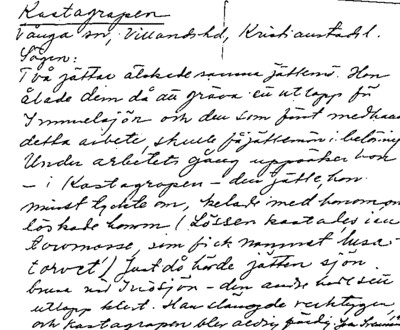 Kastagropen
Vånga sn, Villands hd, Kristianstads l.
Sägen:
Två jättar älskade samma jättemö. Hon
ålade dem då att gräva ett utlopp för
Immelsjön och den som först medhann
detta arbete, skulle få jättemön i belöning
Under arbetets gång uppsöker hon
– i Kastagropen – den jätte, hon
minst tyckte om, kelade med honom, och
löskade honom. (Lössen kastades i en
torvmosse, som fick namnet "lusa-
torvet"). Just då hörde jätten sjön
brusa vid Ivösjön – den andre hade sitt
utlopp klart. Han slängde verktygen,
och Kastagropen blev aldrig färdig